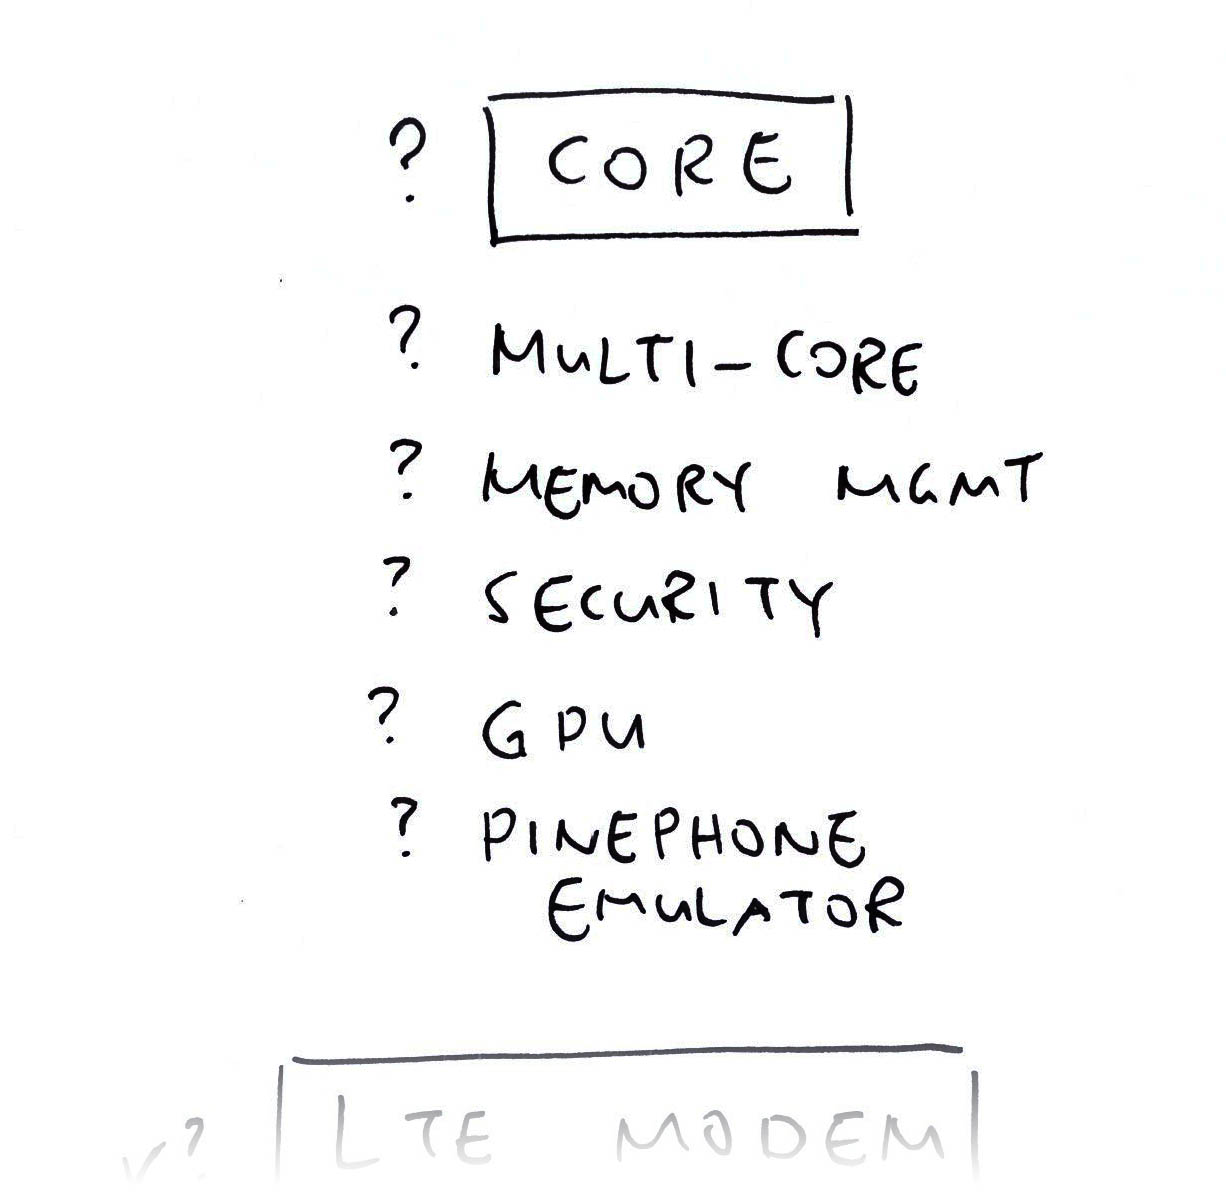 ? CORE
? MULTI-CORE
? MEMORY MGMT
? SECURITY
? GPU
? PINEPHONE
EMULATOR
✓? LTE MODEM